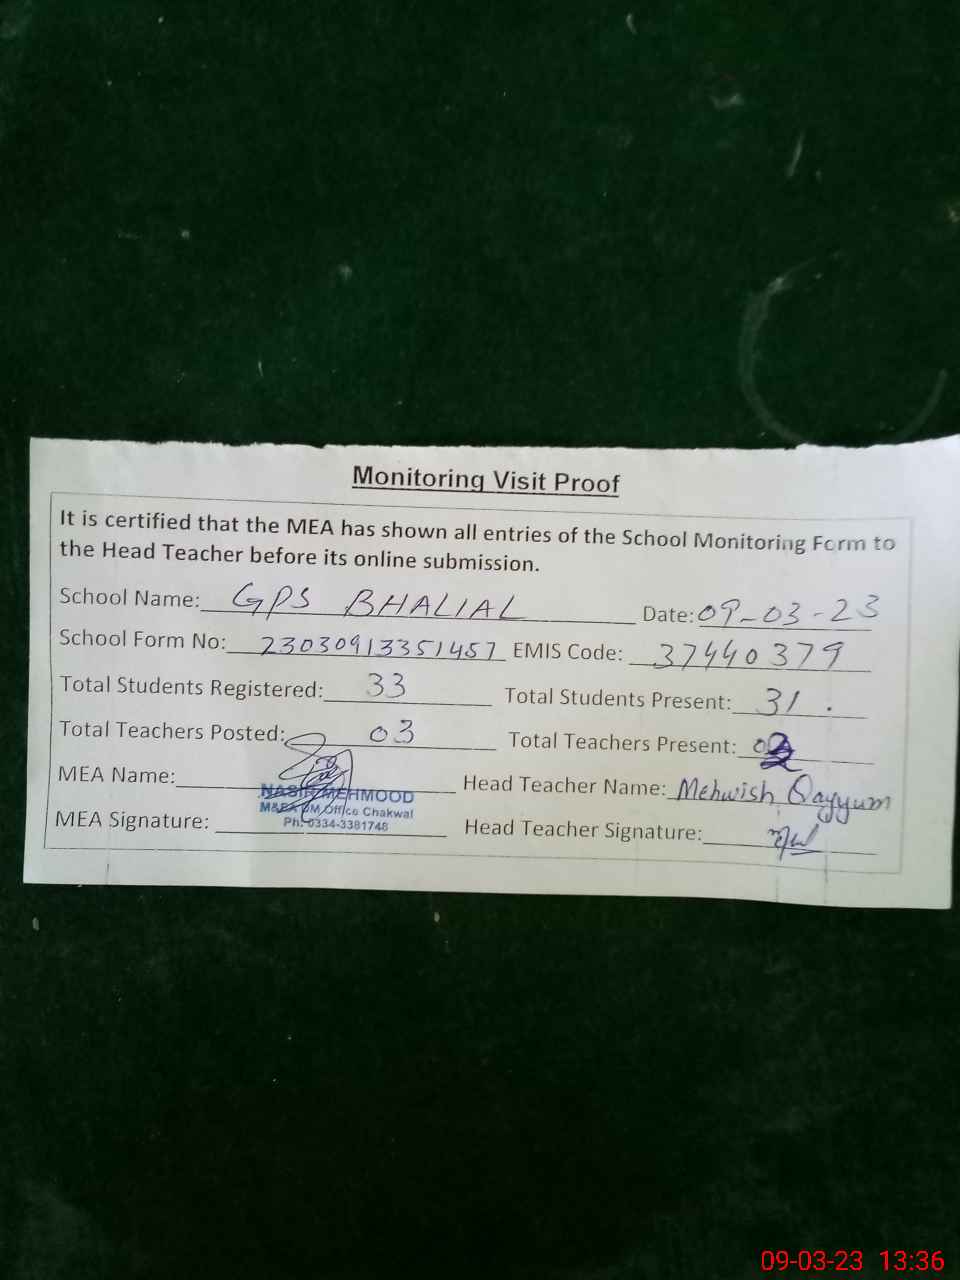 Monitoring Visit Proof
It is certified that the MEA has shown all entries of the School Monitoring Form to
the Head Teacher before its online submission.
School Name: GPS BHALIAL Date: 09-03-23
School Form No: 23030913351457 EMIS Code: 37440379
Total Students Registered: 33 Total Students Present: 31.
Total Teachers Posted: 03 Total Teachers Present: 02
MEA Name: Head Teacher Name: Mehwish Qayyum
NASIR MEHMOOD
M&EA DM Office Chakwal
Ph: 0334-3381748
MEA Signature: Head Teacher Signature:
09-03-23 13:36